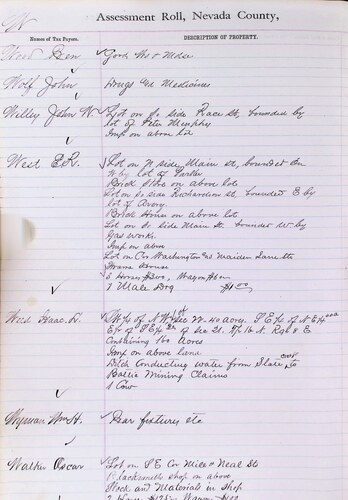 W
Assessment Roll, Nevada County,
Names of Tax Payers.
DESCRIPTION OF PROPERTY.
Wood Ben
Goods Wares & Mdse
Wolf John
Drugs and Medicines
Willey John W.
Lot on So side Race St, bounded by
lot of Peter Murphy
Imp on above lot
West E.R.
Lot on N side Main St, bounded on
W by lot of
Brick Store on above lot
Lot on So side Richardson St, bounded E by
lot of Avery.
Brick House on above lot
Lot on So side Main St. bounded W. by
Gas works.
Imp on above
Lot on Cor Washington and Maiden Lane Sts
Frame House
3 Horses $200, Wagon
1 Male Dog $1.00
Isaac
of Sec 21. Tp 16 N. Rge 8 E
Containing 160 acres
Imp on above land
Ditch Conducting water from Slate Crk to
Mining Claims
1 Cow
Wyman Wm H.
Bar fixtures etc
Walker Oscar
Lot on S E Cor Mill & Neal Sts
Blacksmith shop on above
Stock and Materials in Shop